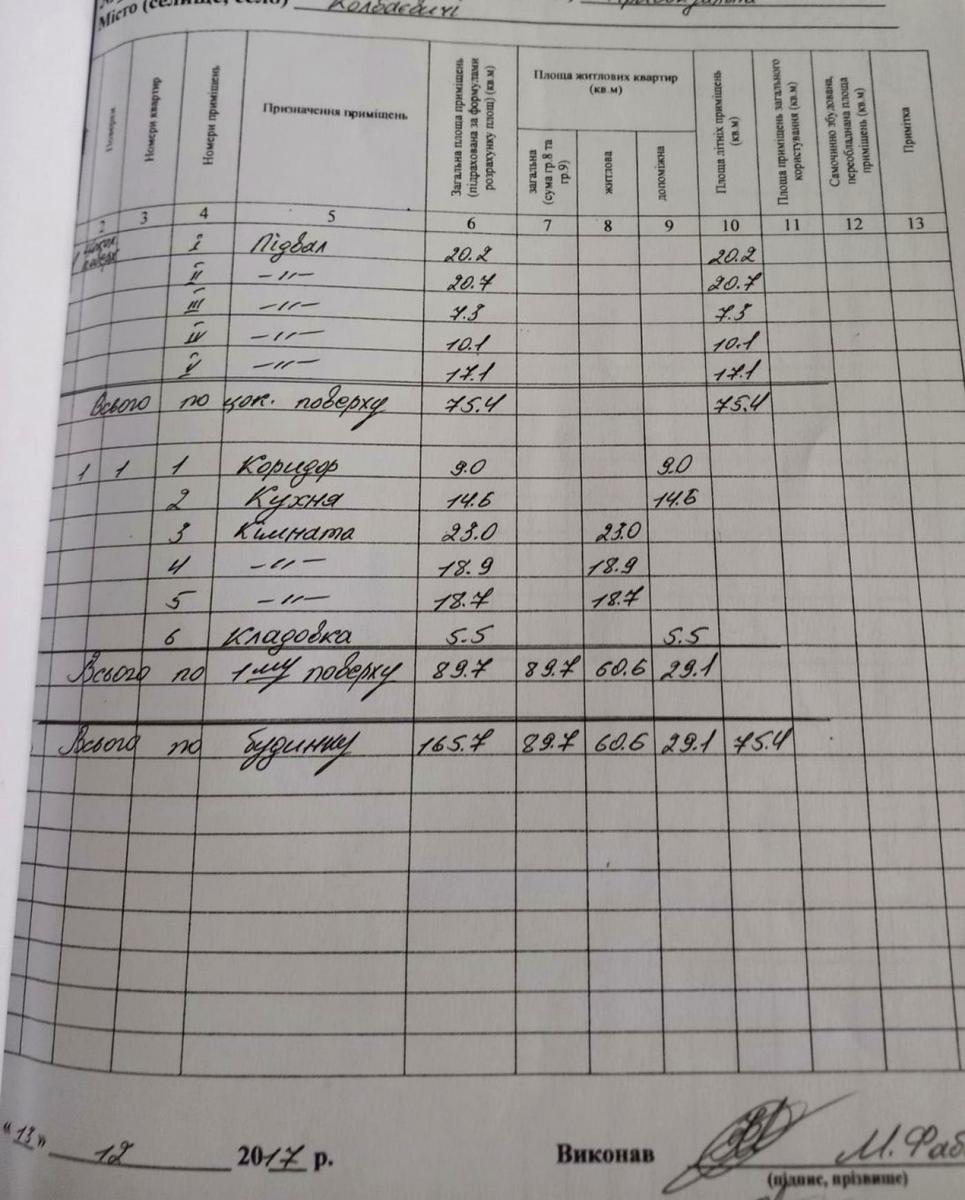 Місто (селище, село) Колбаєвичі
Поверхи
Номери квартир
Номери приміщень
Призначення приміщень
Загальна площа приміщень (підрахована за формулами розрахунку площ) (кв.м)
Площа житлових квартир (кв.м)
загальна (сума гр.8 та гр.9)
житлова
допоміжна
Площа літніх приміщень (кв.м)
Площа приміщень загального користування (кв.м)
Самочинно збудована, переобладнана площа приміщень (кв.м)
Примітка
2 3 4 5 6 7 8 9 10 11 12 13
цокол. поверх I Підвал 20.2 20.2
II -"- 20.7 20.7
III -"- 7.3 7.3
IV -"- 10.1 10.1
V -"- 17.1 17.1
Всього по цок. поверху 75.4 75.4
1 1 1 Коридор 9.0 9.0
2 Кухня 14.6 14.6
3 Кімната 23.0 23.0
4 -"- 18.9 18.9
5 -"- 18.7 18.7
6 Кладовка 5.5 5.5
Всього по 1му поверху 89.7 89.7 60.6 29.1
Всього по будинку 165.7 89.7 60.6 29.1 75.4
"13" 12 2017 р. Виконав М. Фаб
(підпис, прізвище)